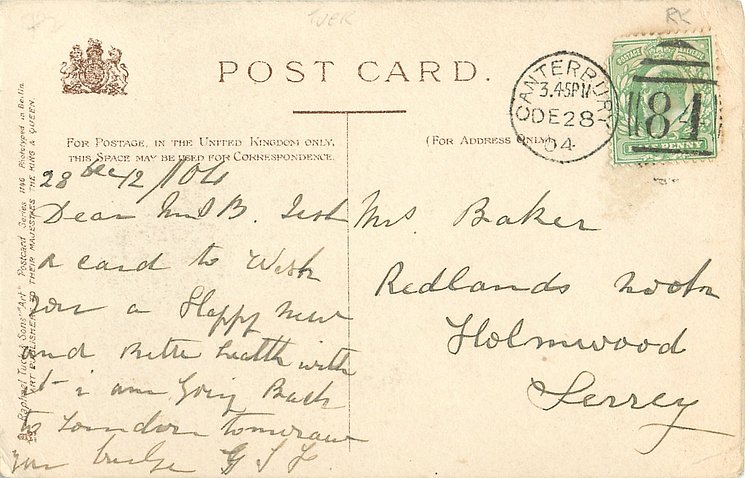 TUCK
RK
POST CARD.
CANTERBURY
3.45PM
DE 28
04
84
POSTAGE
PENNY
FOR POSTAGE, IN THE UNITED KINGDOM ONLY,
THIS SPACE MAY BE USED FOR CORRESPONDENCE.
(FOR ADDRESS ONLY)
Raphael Tuck & Sons' "Art" Postcard Series 1746 Phototyped in Berlin.
ART PUBLISHERS TO THEIR MAJESTIES THE KING & QUEEN.
28 12/04
Dear Mrs B. Just
a card to Wish
you a Happy new
and Better health with
it i am Going Back
to Loundon tomuraw
G
Mrs. Baker
Redlands
Holmwood
Serrey